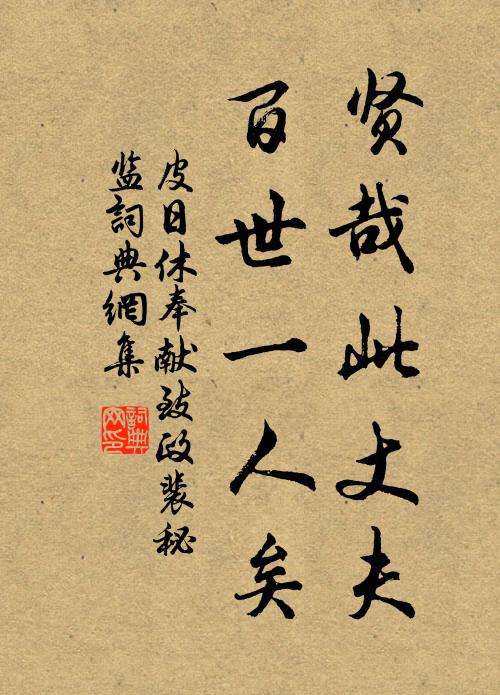 贤哉此丈夫
百世一人矣
皮日休奉献致政裴秘
监詞典網集
詞典網印